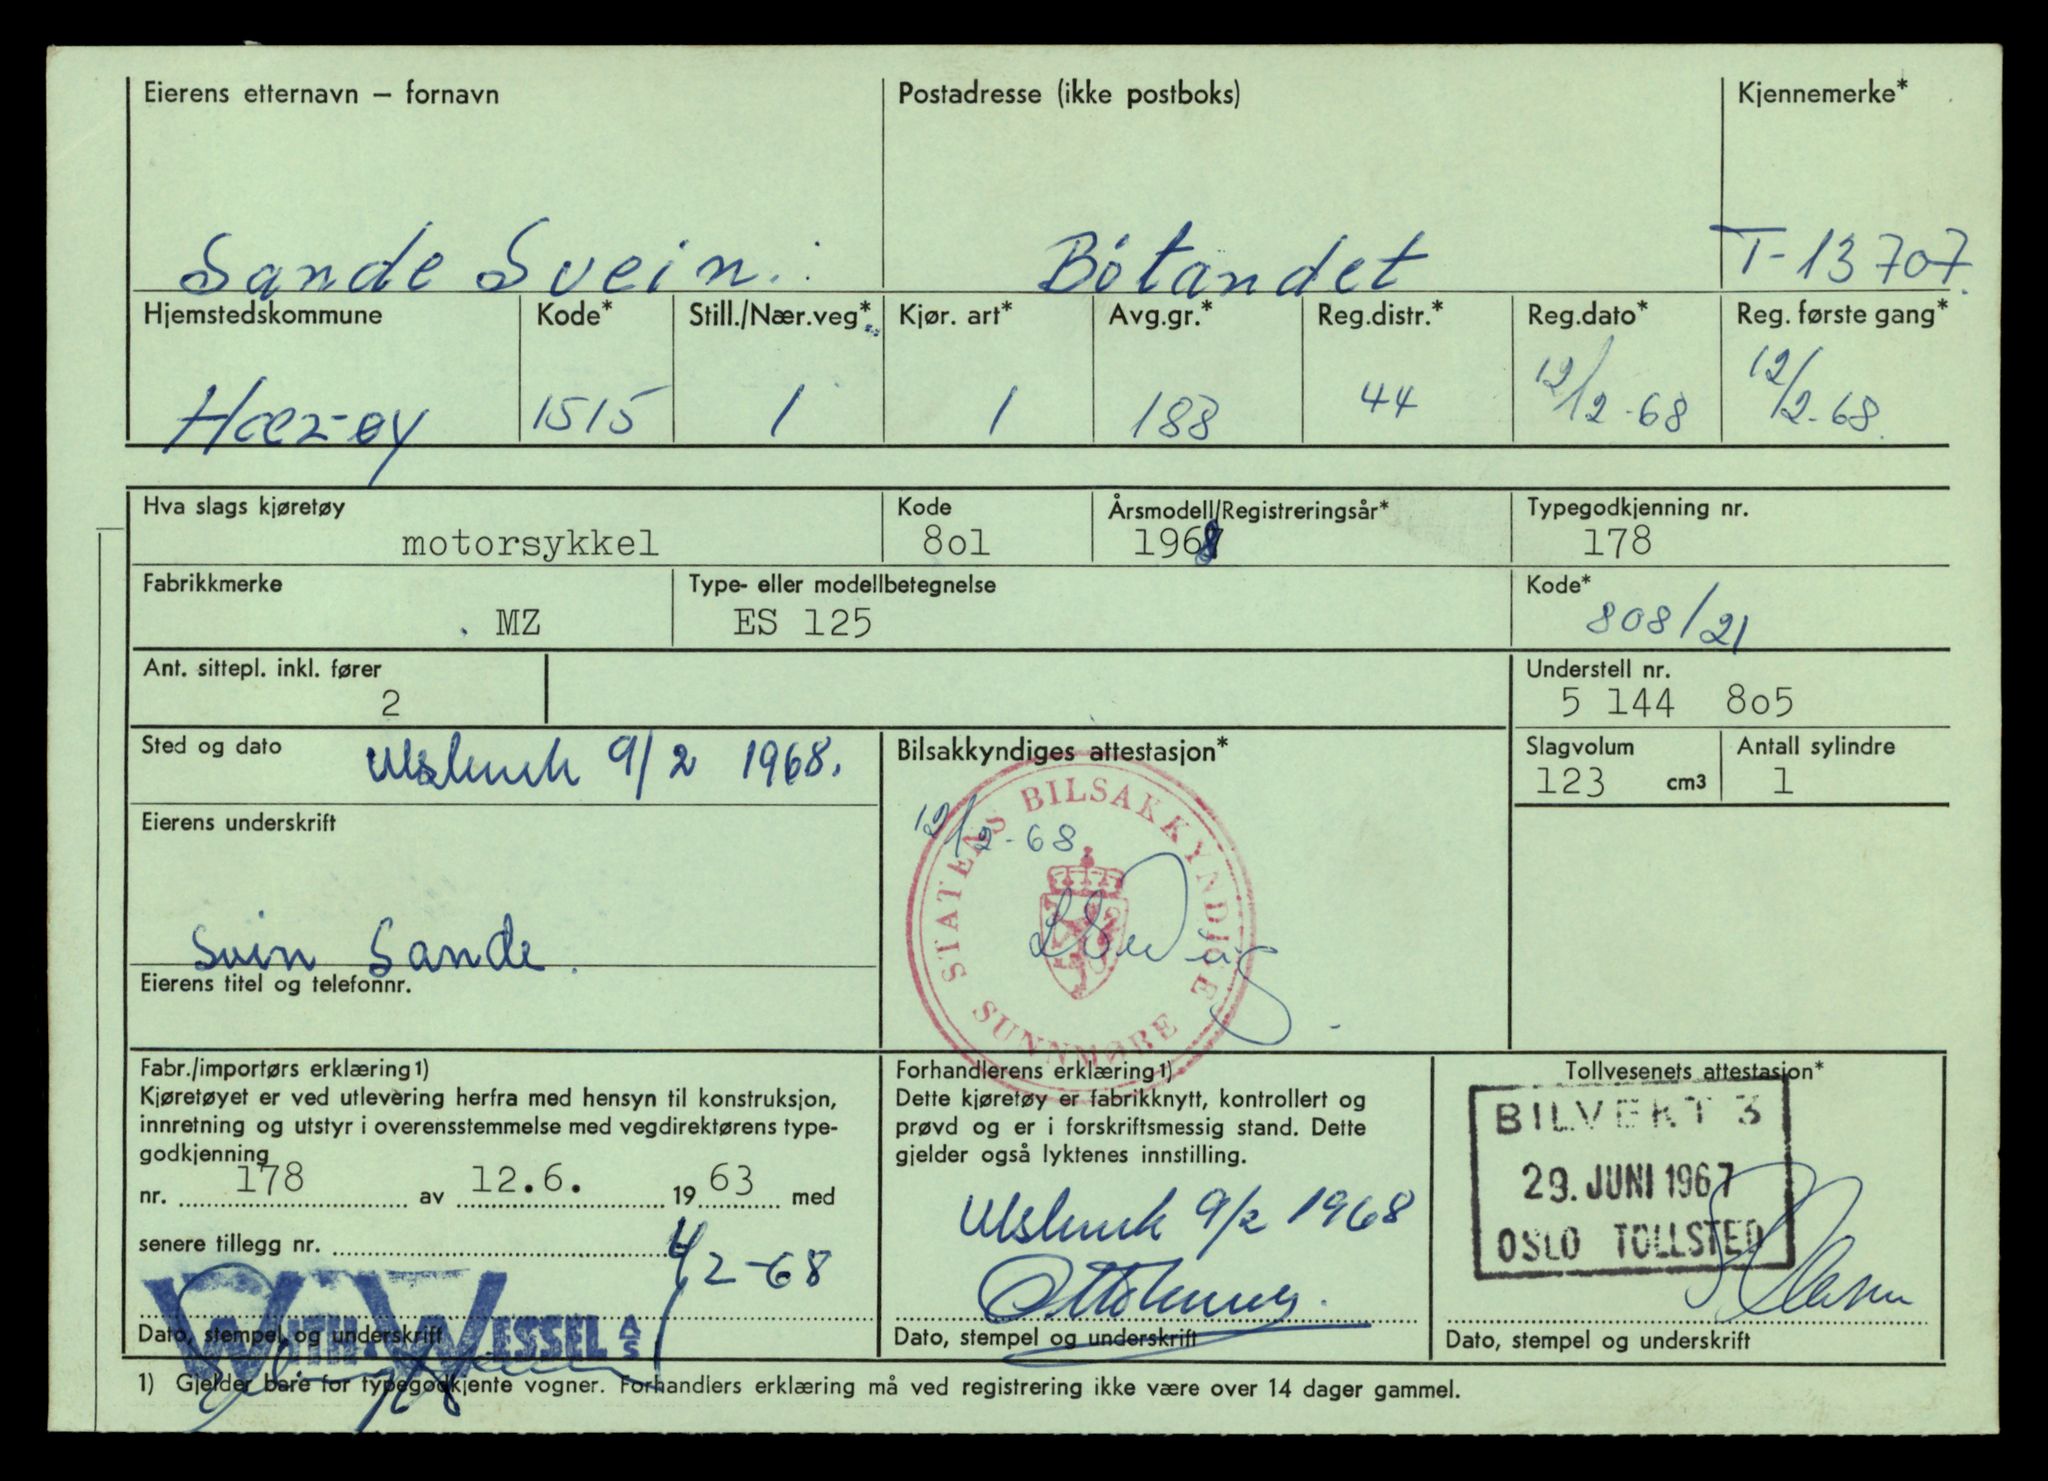 Eierens etternavn – fornavn
Postadresse (ikke postboks)
Kjennemerke*
Sande Svein.
Bötandet
T-13707.
Hjemstedskommune
Kode*
Still./Nær.veg*
Kjør. art*
Avg.gr.*
Reg.distr.*
Reg.dato*
Reg. første gang*
Hærøy
1515
1
1
188
44
12/2-68
12/2-68.
Hva slags kjøretøy
Kode
Årsmodell/Registreringsår*
Typegodkjenning nr.
motorsykkel
8o1
1968
178
Fabrikkmerke
Type- eller modellbetegnelse
Kode*
MZ
ES 125
808/21
Ant. sittepl. inkl. fører
Understell nr.
2
5 144 8o5
Sted og dato
9/2 1968.
Bilsakkyndiges attestasjon*
Slagvolum
Antall sylindre
123 cm3
1
Eierens underskrift
12/2-68
STATENS BILSAKKYNDIGE
SUNNMØRE
Svein Sande.
Eierens titel og telefonnr.
Fabr./importørs erklæring1)
Kjøretøyet er ved utlevering herfra med hensyn til konstruksjon,
innretning og utstyr i overensstemmelse med vegdirektørens type-
godkjenning
nr. 178 av 12.6. 1963 med
senere tillegg nr.
4/2-68
WITH & WESSEL A/S
Dato, stempel og underskrift
Forhandlerens erklæring1)
Dette kjøretøy er fabrikknytt, kontrollert og
prøvd og er i forskriftsmessig stand. Dette
gjelder også lyktenes innstilling.
9/2 1968
Dato, stempel og underskrift
Tollvesenets attestasjon*
BILVEKT 3
29. JUNI 1967
OSLO TOLLSTED
Dato, stempel og underskrift
1) Gjelder bare for typegodkjente vogner. Forhandlers erklæring må ved registrering ikke være over 14 dager gammel.